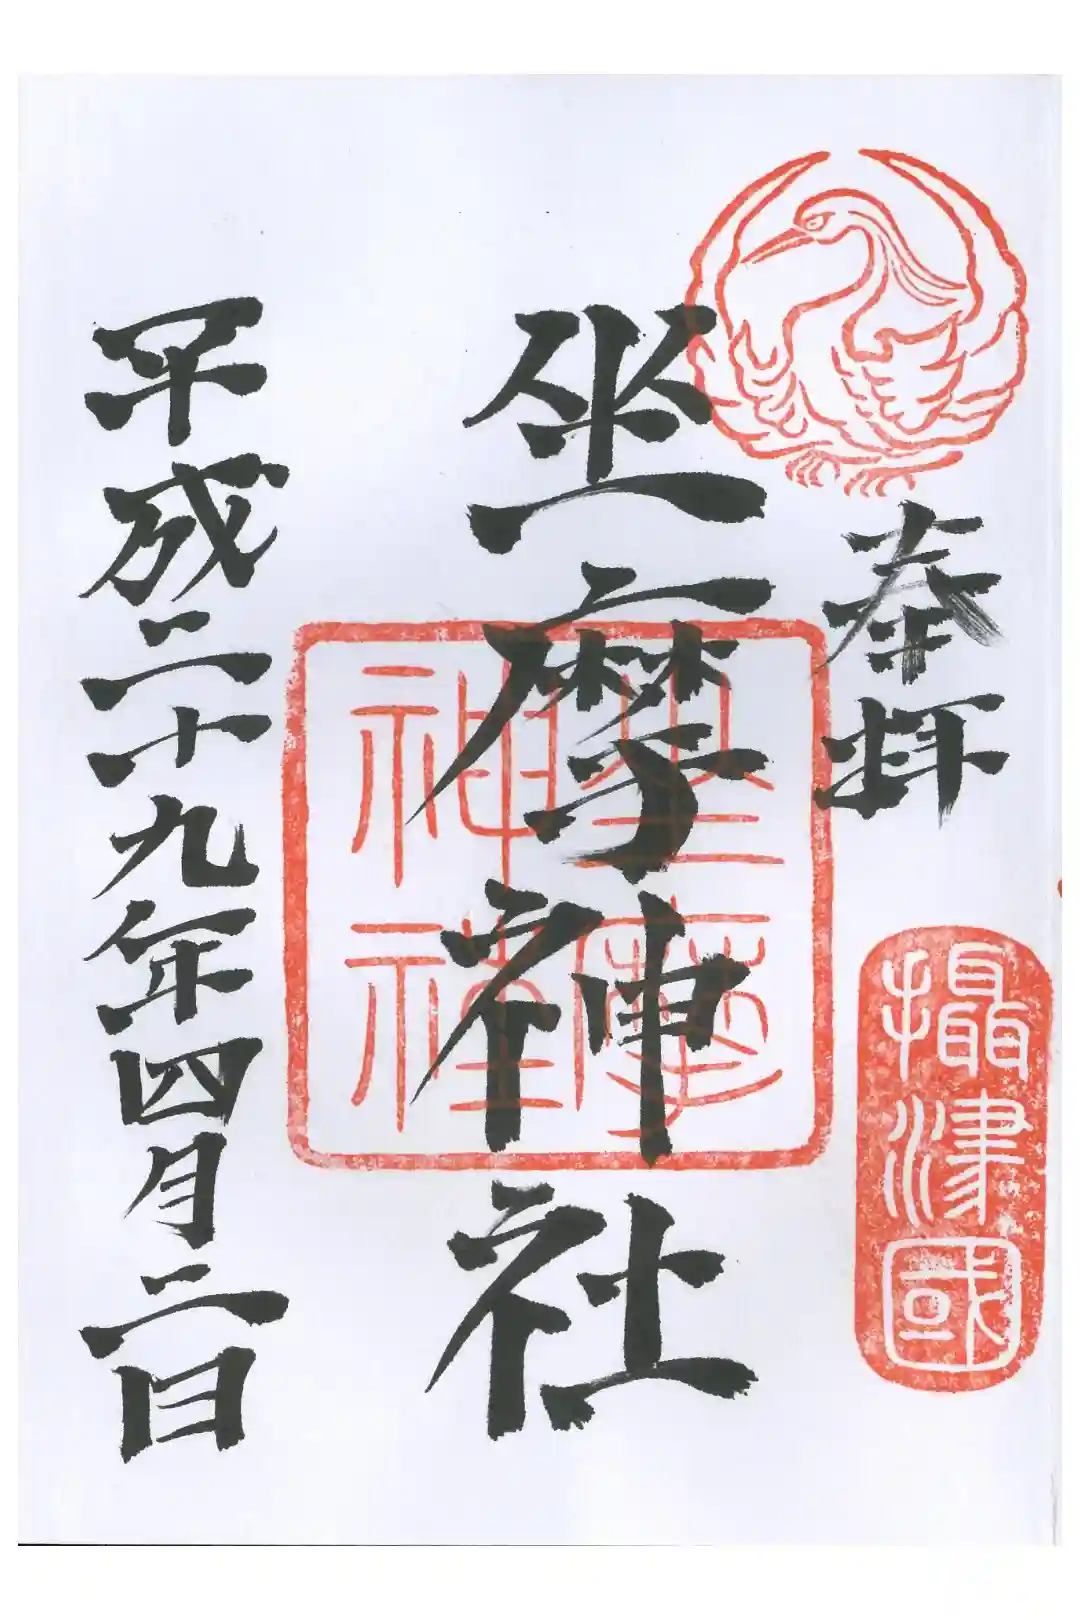 奉拝
攝津國
坐摩神社
坐摩
神社
平成二十九年四月二日